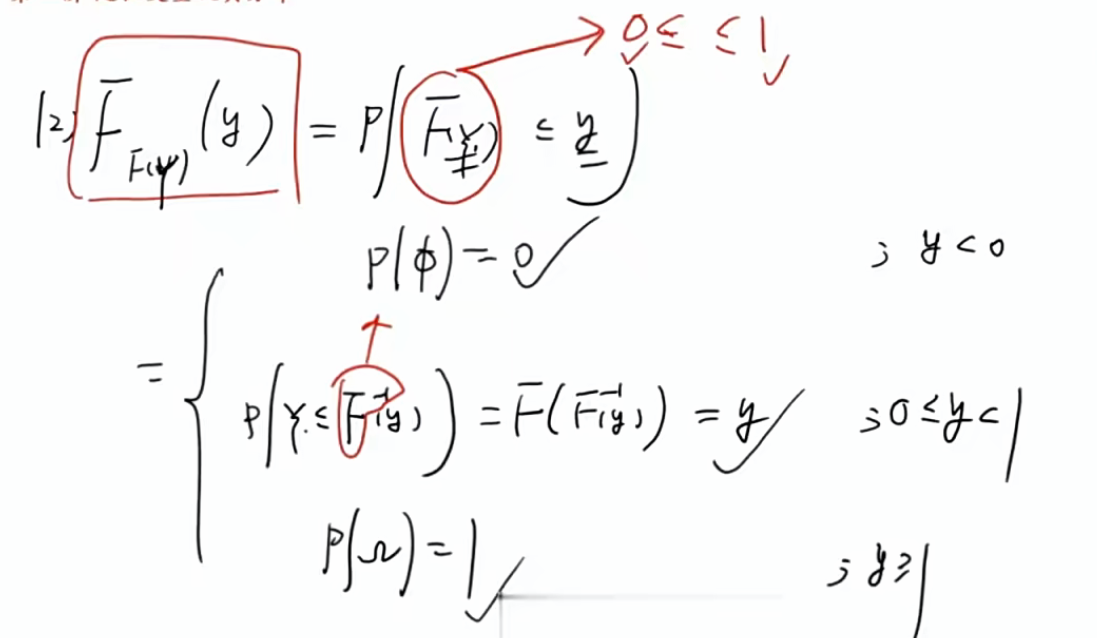 0 ≤ ≤ 1
(2) F_{F(Y)}(y) = P(F(Y) ≤ y)
P(ϕ) = 0 ; y < 0
= {
P(Y ≤ F⁻¹(y)) = F(F⁻¹(y)) = y ; 0 ≤ y < 1
P(Ω) = 1 ; y ≥ 1